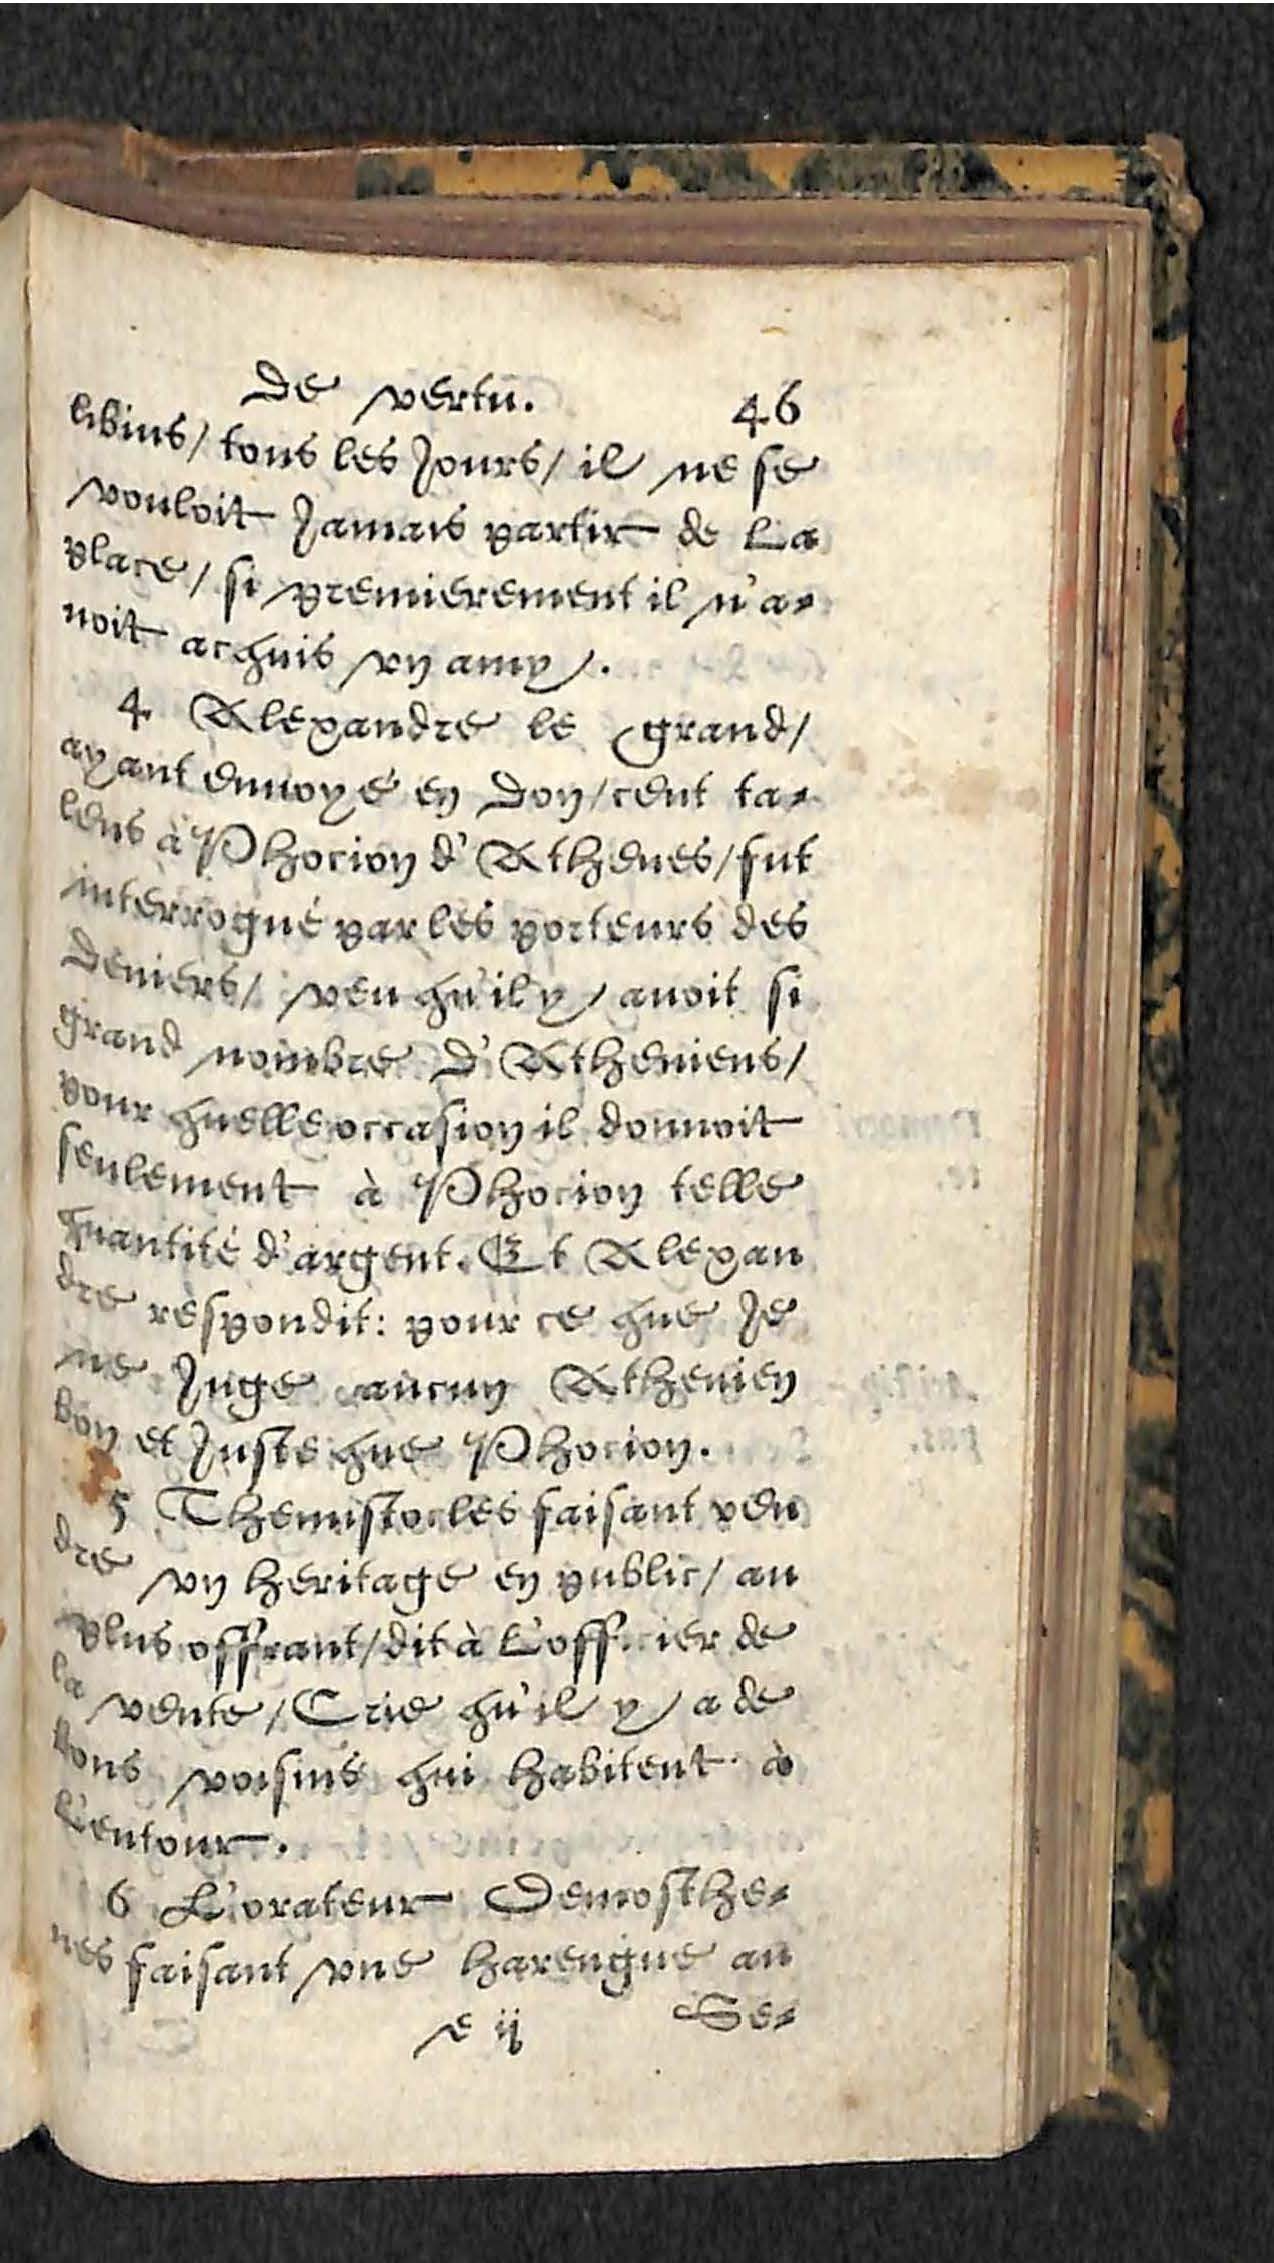 de vertu. 46
libius/ tous les Jours/ il ne se
vouloit Jamais partir de La
place/ si premierement il n'a-
uoit acquis vn amy.
4 Alexandre le grand/
ayant enuoyé en Don/ cent ta-
lens à Phocion d'Athenes/ fut
interrogué par les porteurs des
Deniers/ veu qu'il y auoit si
grand nombre D'Atheniens/
pour quelle occasion il donnoit
seulement à Phocion telle
quantité d'argent. Et Alexan
dre respondit: pour ce que Je
ne Juge aucun Athenien
bon et Juste que Phocion.
5 Themistocles faisant ven
dre vn heritage en public/ au
plus offrant/ dit à L'officier de
la vente/ Crie qu'il y a de
bons voisins qui habitent à
L'entour.
6 L'orateur Demosthe-
nes faisant vne harengue au
e ij Se-